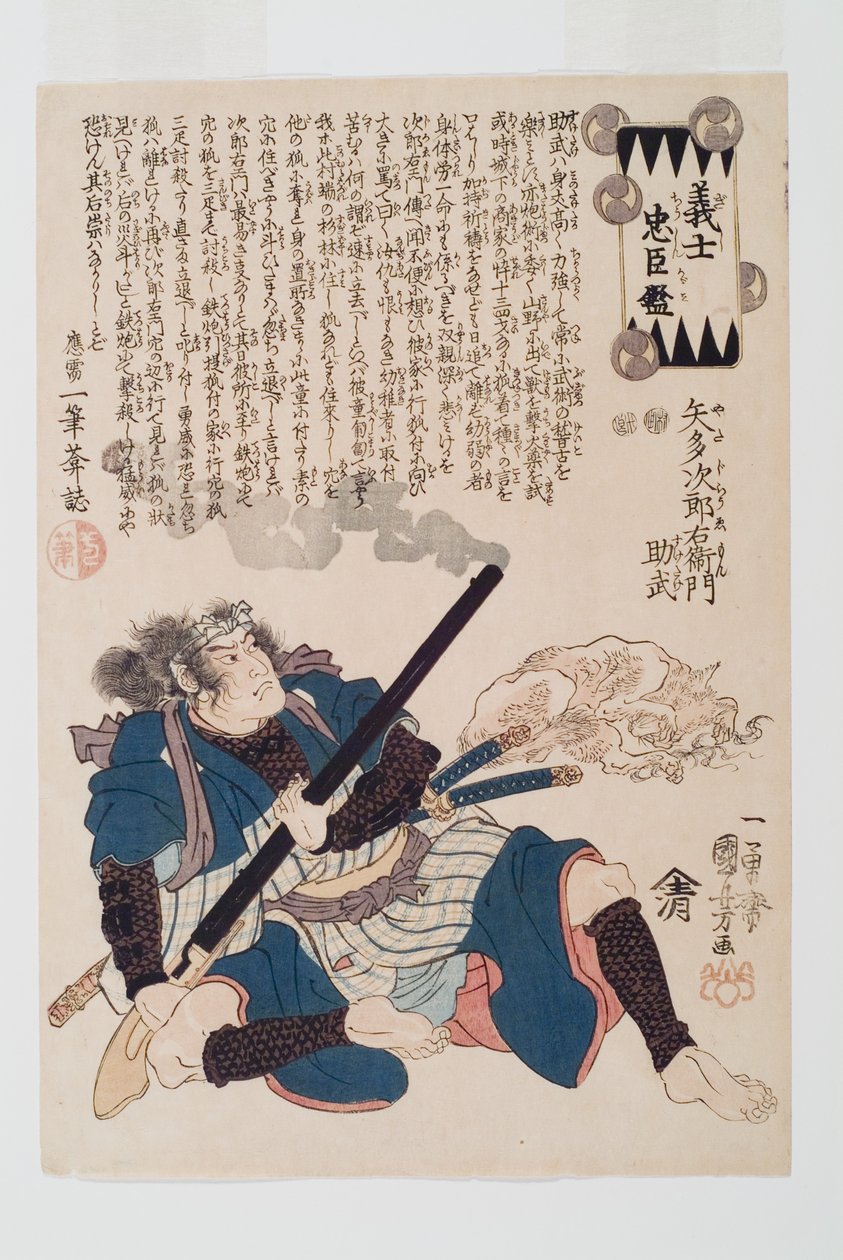 義士
忠臣鑑
矢多次郎右衛門
助武
助武ハ身丈高く力強して常に武術の稽古を
楽とし亦炮術に委く山野に出て獣を撃火薬を試
或時城下の商家の忰十三四才なるに小狐着て種々の言を
口ばしり加持祈祷をなせども日追て離ず幼弱の者
身体労一命にも係るべきを双親深く悲ミけるを
次郎右エ門傳へ聞不便に想ひ彼家に行狐付に向ひ
大きに罵て曰く汝仇も恨もなき幼稚者に取付
苦むるハ何の謂ぞ速に立去べしといへバ彼童匍匐て言やう
我ハ此村端の杉林に住し狐なれども住來りし穴を
他の狐に奪れ一身の置所なきまゝに此童に付たり素の
穴に住べきやうに斗ひたまハらバ忽ち立退べしと言けれバ
次郎右エ門最易き支なりとて其日彼所に至り鉄炮にて
穴の狐を三疋まで討殺し鉄炮に引提狐付の家に行穴の狐
三疋討殺たり直さま立退べしと叱り付し勇威に恐れ忽ち
狐ハ離れけるに再び次郎右エ門穴の辺に行て見れバ狐の状
見へけれバ后の災斗りがたしと鉄炮にて撃殺しける猛威にや
恐けん其后祟ハなかりしとぞ
應需 一筆葊誌
一勇齋
國芳画